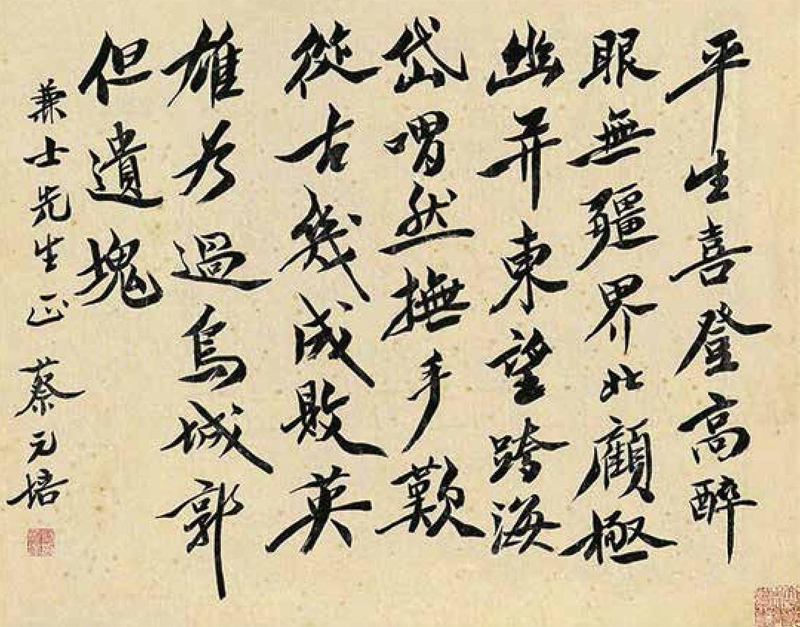 平生喜登高醉
眼無疆界北顧極
幽并東望跨海
岱喟然撫手歎
從古幾成敗英
雄为過鳥城郭
但遺塊
兼士先生正 蔡元培